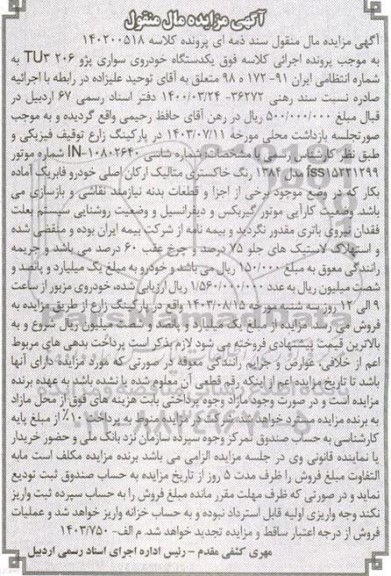 آگهی مزایده مال منقول
آگهی مزایده مال منقول سند ذمه ای پرونده کلاسه ۱۴۰۲۰۰۵۱۸
به موجب پرونده اجرائی کلاسه فوق یکدستگاه خودروی سواری پژو ۲۰۶ TU۳ به
شماره انتظامی ایران ۹۱- ۱۷۲ ه ۹۸ متعلق به آقای توحید علیزاده در رابطه با اجرائیه
صادره نسبت سند رهنی ۳۶۲۷۲- ۱۴۰۰/۰۳/۲۴ دفتر اسناد رسمی ۶۷ اردبیل در
قبال مبلغ ۵۰۰/۰۰۰/۰۰۰ ریال در رهن آقای حافظ رحیمی واقع گردیده و به موجب
صورتجلسه بازداشت محلی مورخه ۱۴۰۳/۰۷/۱۱ در پارکینگ زارع توقیف فیزیکی و
طبق نظر کارشناس رسمی با مشخصات: شماره شاسی IN-۱۰۸۰۲۶۴۰ شماره موتور
fss۱۵۲۲۱۲۹۹ مدل ۱۳۸۴ رنگ خاکستری متالیک ارکان اصلی خودرو فابریک آماده
بکار که در وضعیت موجود برخی از اجزا و قطعات بدنه نیازمند نقاشی و بازسازی می
باشد. وضعیت کارآیی موتور گیربکس و دیفرانسیل و وضعیت روشنایی سیستم بعلت
فقدان نیروی باتری مقدور نگردید و بیمه نامه از شرکت بیمه ایران بوده و منقضی شده
و استهلاک لاستیک های جلو ۷۵ درصد و چرخ عقب ۶۰ درصد می باشد و جریمه
رانندگی معوق به مبلغ ۱۵۰/۰۰۰ ریال می باشد و خودرو به مبلغ یک میلیارد و پانصد و
شصت میلیون ریال به عدد ۱/۵۶۰/۰۰۰/۰۰۰ ریال ارزیابی شده، خودروی مزبور از ساعت
۹ الی ۱۲ روز سه شنبه مورخه ۱۴۰۳/۰۸/۱۵ واقع در پارکینگ زارع از طریق مزایده به
فروش می رسد. مزایده از مبلغ یک میلیارد و پانصد و شصت میلیون ریال شروع و به
بالاترین قیمت پیشنهادی فروخته می شود لازم بذکر است پرداخت بدهی های مربوط
اعم از خلافی، عوارض و جرایم رانندگی معوقه در صورتی که مورد مزایده دارای آنها
باشد تا تاریخ مزایده اعم از اینکه رقم قطعی آن معلوم شده یا نشده باشد به عهده برنده
مزایده است و در صورت وجود مازاد وجوه پرداختی بابت هزینه های فوق از محل مازاد
به برنده مزایده مسترد خواهد شد شرکت در مزایده منوط به پرداخت ۱۰٪ از مبلغ پایه
کارشناسی به حساب صندوق تمرکز وجوه سپرده سازمان نزد بانک ملی و حضور خریدار
یا نماینده قانونی وی در جلسه مزایده الزامی می باشد برنده مزایده مکلف است مابه
التفاوت مبلغ فروش را ظرف مدت ۵ روز از تاریخ مزایده به حساب صندوق ثبت تودیع
نماید و در صورتی که ظرف مهلت مقرر مانده مبلغ فروش را به حساب سپرده ثبت واریز
نکند وجه واریزی اولیه قابل استرداد نبوده و به حساب خزانه واریز خواهد شد و عملیات
فروش از درجه اعتبار ساقط و مزایده تجدید خواهد شد. م الف- ۱۴۰۳/۷۵۰
مهری کشفی مقدم - رئیس اداره اجرای اسناد رسمی اردبیل